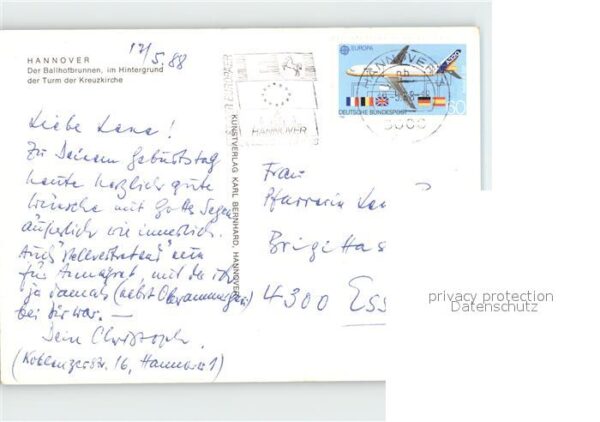 17/5.88
HANNOVER
Der Ballhofbrunnen, im Hintergrund
der Turm der Kreuzkirche
Liebe Lena!
Zu Deinem Geburtstag
heute herzlich gute
Wünsche mit Gottes Segen
äußerlich wie innerlich.
Auch "stellvertretend"
für Annegret, mit der ich
ja damals (nebst
bei Dir war. —
Dein Christoph.
(Koblenzerstr. 16, Hannover 1)
KUNSTVERLAG KARL BERNHARD, HANNOVER
HANNOVER
EUROPA
A320
DEUTSCHE BUNDESPOST
60
HANNOVER
3000
Frau
Pfarrerin
Brigittas
4300 Ess
privacy protection
Datenschutz